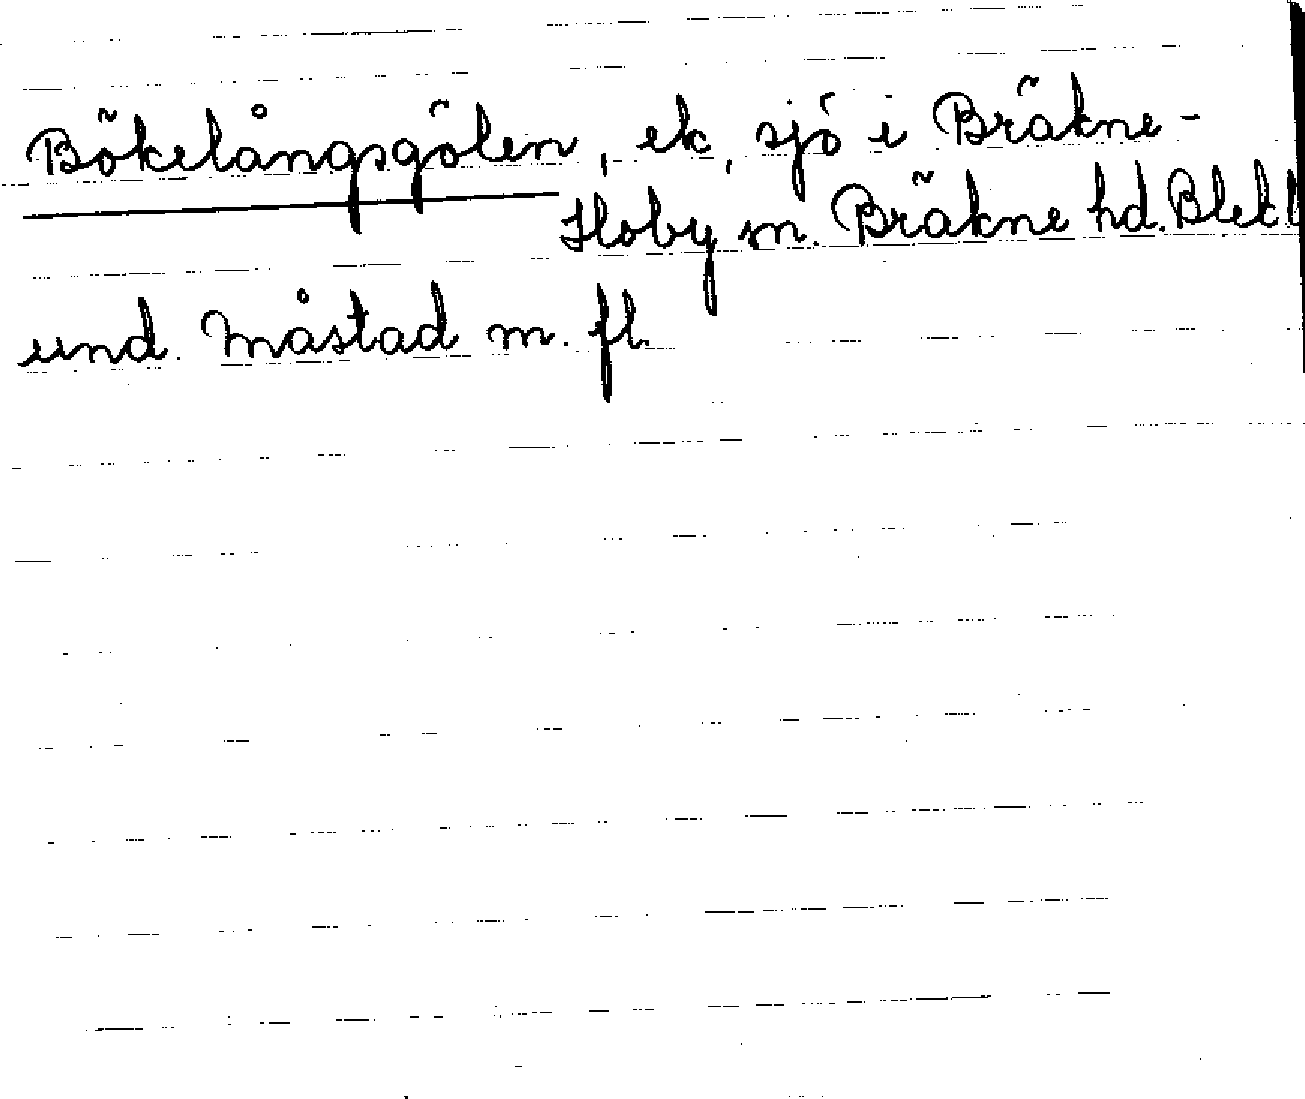 Bökelångsgölen, ek, sjö i Bräkne-
Hoby sn. Bräkne hd. Blek.l
und. Måstad m. fl.